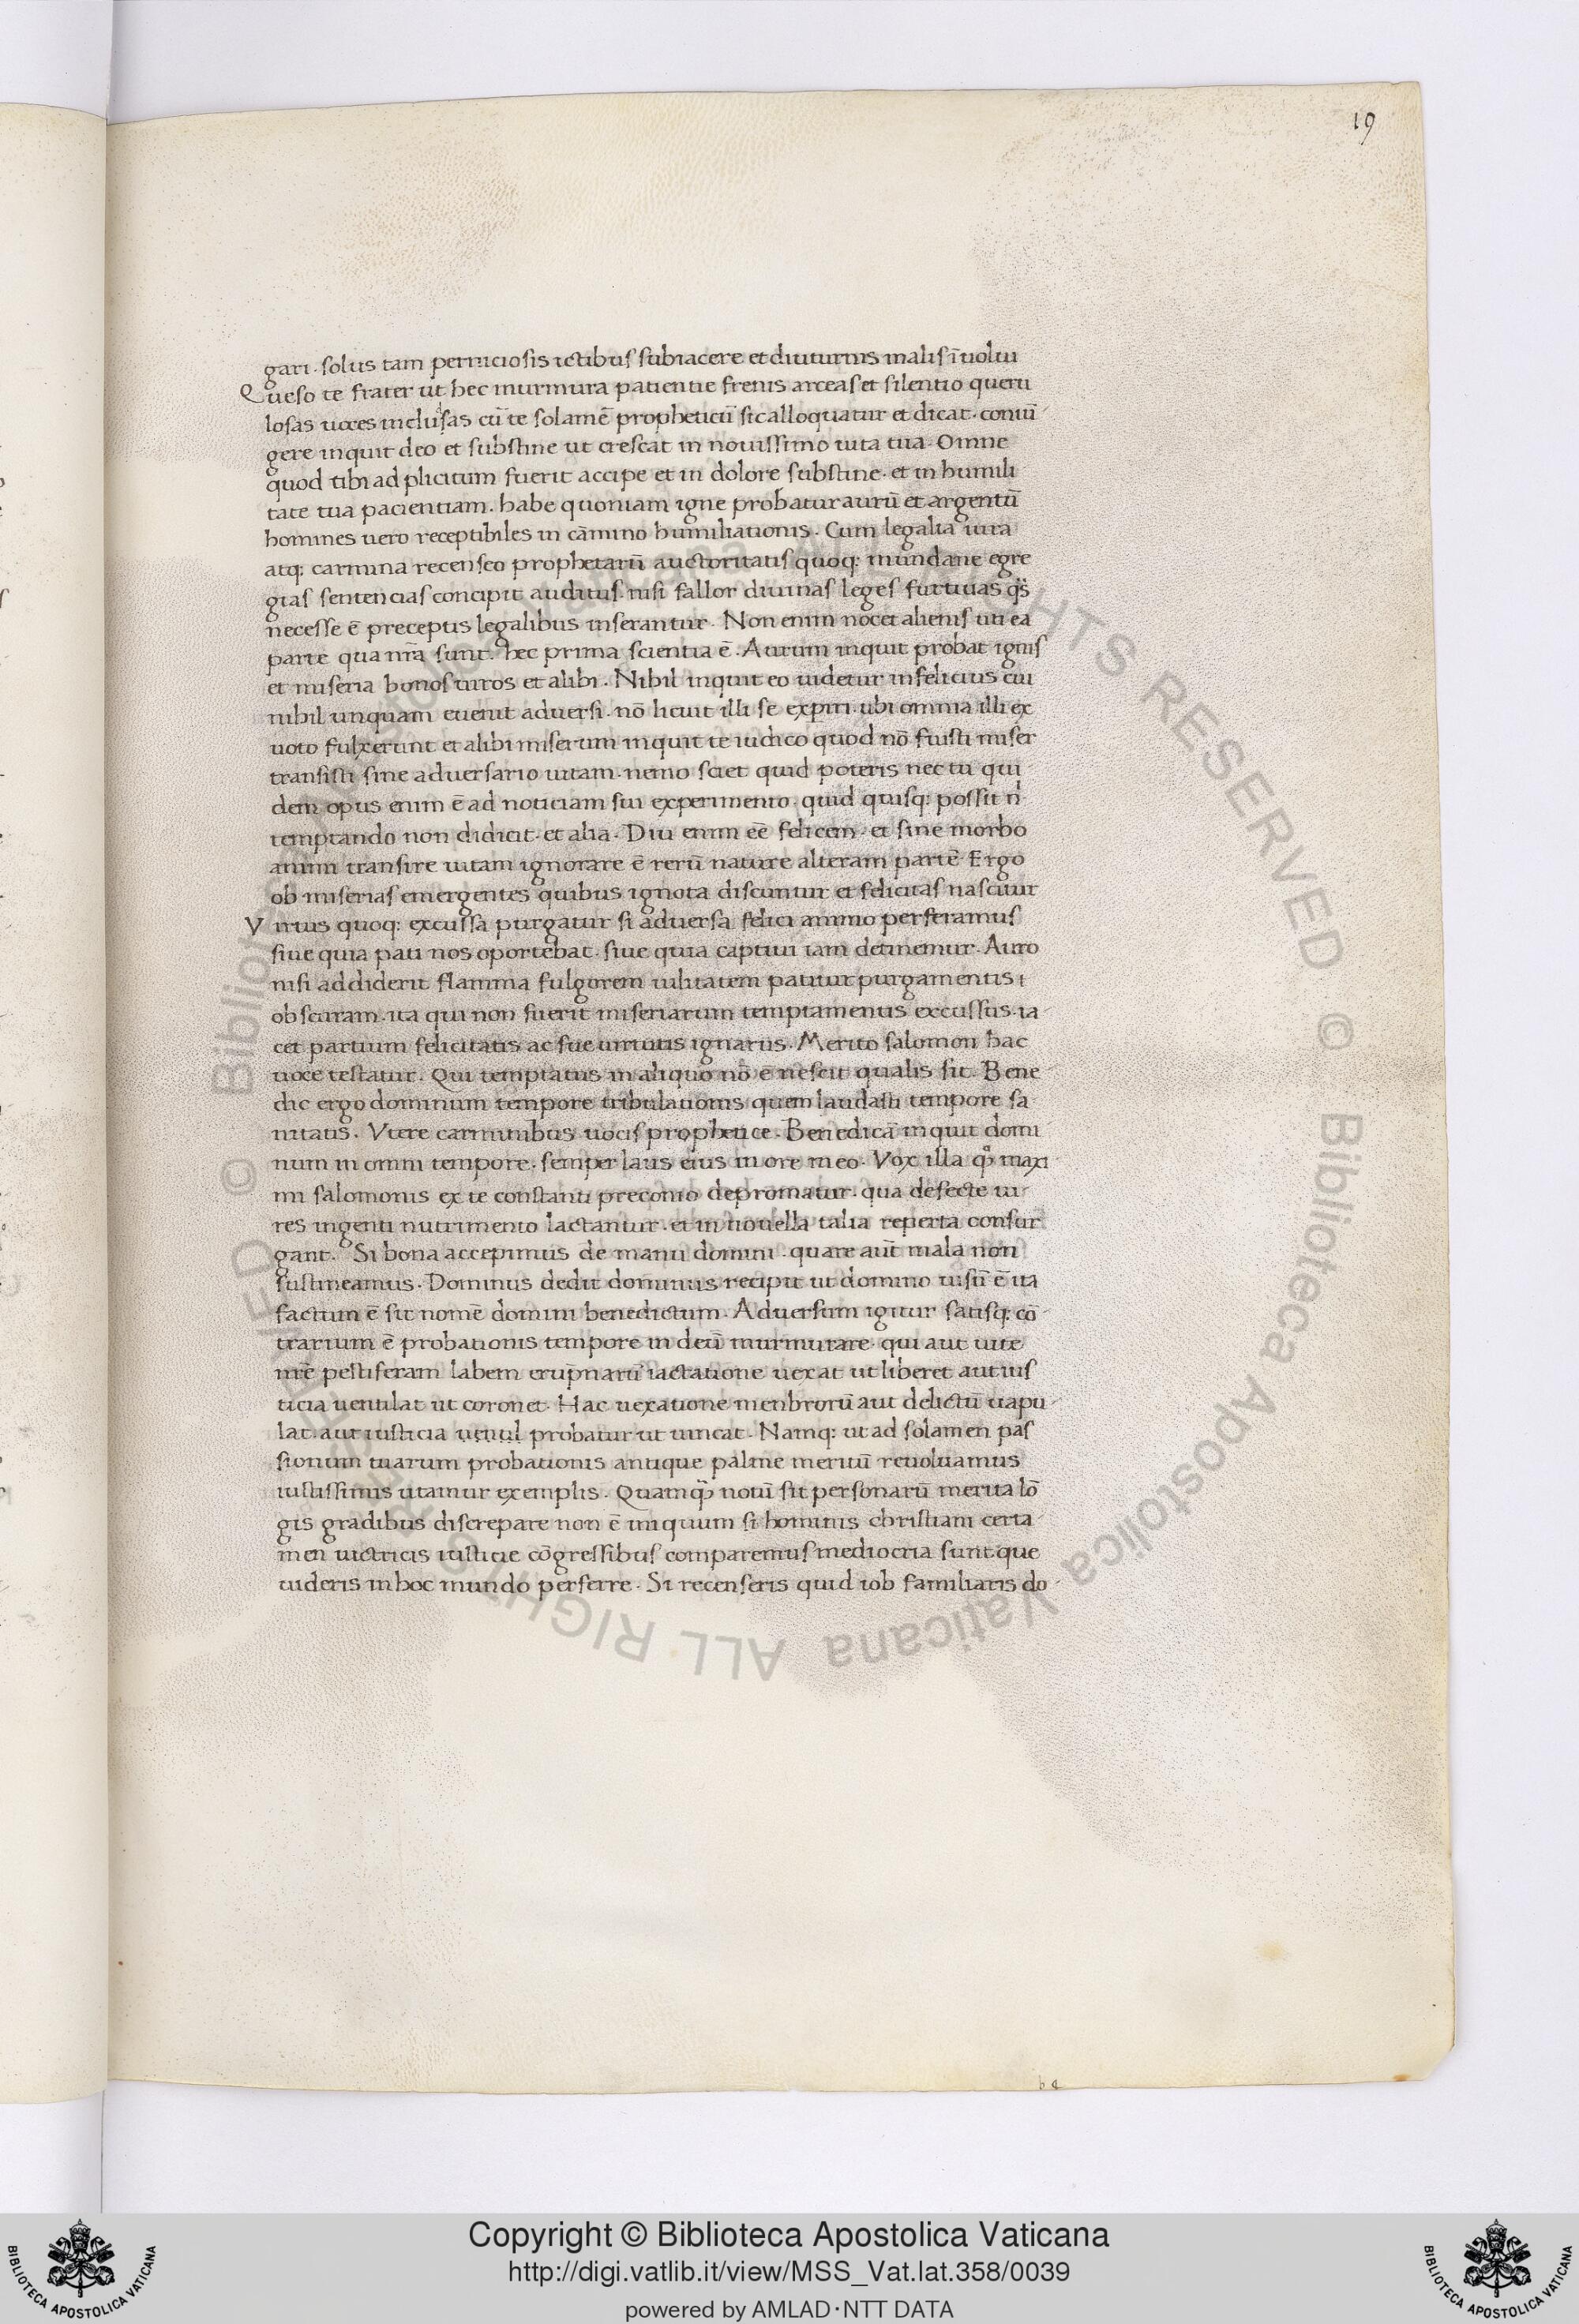 19
gari. solus tam perniciosis ictibus subiacere et diuturnis malis ī uolui
Queso te frater ut hec murmura patientie frenis arceas et silentio queru
losas uoces inclusas cū te solamē propheticū sic alloquatur et dicat. coniū
gere inquit deo et substine ut crescat in nouissimo uita tua. Omne
quod tibi ad plicitum fuerit accipe et in dolore substine. et in humili
tate tua pacientiam. habe quoniam igne probatur aurū et argentū
homines uero receptibiles in camino humiliationis. Cum legalia iura
atq: carmina recenseo prophetarū auctoritatis quoq: mundane egre
gias sentencias concipit auditus. nisi fallor diuinas leges furtiuas
necesse ē preceptis legalibus inserantur. Non enim nocet alienis uti ea
parte qua nr̄a sunt. hec prima scientia ē. Aurum inquit probat ignis
et miseria bonos uiros et alibi. Nihil inquit eo uidetur infelicius cui
nihil unquam euenit aduersi. nō licuit illi se expiri. ubi omnia illi ex
uoto fulxerunt et alibi miserum inquit te iudico quod nō fuisti miser
transisti sine aduersario uitam. nemo sciet quid poteris nec tu qui
dem opus enim ē ad noticiam sui experimento. quid quisq: possit n̄
temptando non didicit. et alia. Diu enim eē felicem. et sine morbo
animi transire uitam ignorare ē rerū nature alteram partē. Ergo
ob miserias emergentes quibus ignota discuntur et felicitas nascitur
Virtus quoq: excussa purgatur si aduersa felici animo perferamus
siue quia pati nos oportebat. siue quia captiui iam detinemur. Auro
nisi addiderit flamma fulgorem uilitatem patitur purgamentis i
obscuram. ita qui non fuerit miseriarum temptamentis excussus. ia
cet partium felicitatis ac sue uirtutis ignarus. Merito salomon hac
uoce testatur. Qui temptatus in aliquo nō ē nescit qualis sit. Bene
dic ergo dominum tempore tribulationis quem laudasti tempore sa
nitatis. Vtere carminibus uocis prophetice. Benedicā inquit domi
num in omni tempore. semper laus eius in ore meo. Vox illa maxi
mi salomonis ex te constanti preconio depromatur. qua defecte ui
res ingenti nutrimento lactantur. et in nouella talia reperta consur
gant. Si bona accepimus de manu domini. quare aut̄ mala non
sustineamus. Dominus dedit dominus recipit ut domino uisū ē ita
factum ē sit nomē domini benedictum. Aduersum igitur satisq: cō
trarium ē probationis tempore in deū murmurare. qui aut uite
nr̄e pestiferam labem erūpnarū iactatione uexat ut liberet aut ius
ticia uentilat ut coronet. Hac uexatione menbrorū aut delictū uapu
lat. aut iusticia utiul probatur ut uincat. Namq: ut ad solamen pas
sionum tuarum probationis antique palme meritū reuoluamus
iustissimis utamur exemplis. Quamq̄ notū sit personarū merita lō
gis gradibus discrepare non ē iniquum si hominis christiani certa
men uictricis iusticie cōgressibus comparemus mediocria sunt que
uideris in hoc mundo perferre. Si recenseris quid iob familiaris do
b 4
Copyright © Biblioteca Apostolica Vaticana
http://digi.vatlib.it/view/MSS_Vat.lat.358/0039
powered by AMLAD·NTT DATA